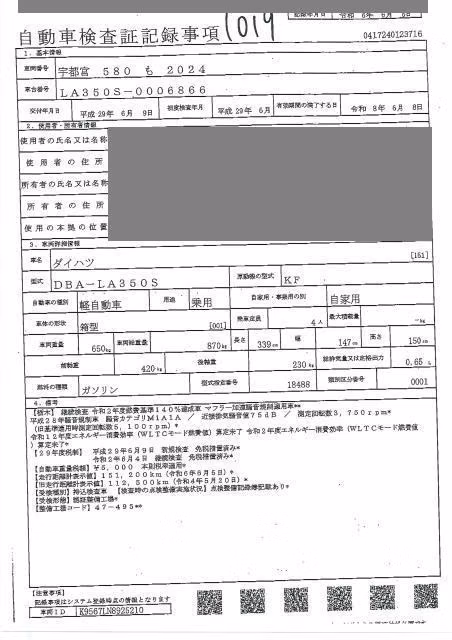 1019
記録年月日 令和 6年 6月 5日
自動車検査証記録事項
0417240123716
1. 基本情報
車両番号 宇都宮 580 も 2024
車台番号 LA350S-0006866
交付年月日 平成 29年 6月 9日 初度検査年月 平成 29年 6月 有効期間の満了する日 令和 8年 6月 8日
2. 使用者・所有者情報
使用者の氏名又は名称
使用者の住所
所有者の氏名又は名称
所有者の住所
使用の本拠の位置
3. 車両詳細情報
車名 ダイハツ [161]
型式 DBA-LA350S 原動機の型式 KF
自動車の種別 軽自動車 用途 乗用 自家用・事業用の別 自家用
車体の形状 箱型 [001] 乗車定員 4人 最大積載量 -kg
車両重量 650kg 車両総重量 870kg 長さ 339cm 幅 147cm 高さ 150cm
前軸重 420kg 後軸重 230kg 総排気量又は定格出力 0.65 L
燃料の種類 ガソリン 型式指定番号 18488 類別区分番号 0001
4. 備考
【栃木】 継続検査 令和2年度燃費基準140%達成車 マフラー加速騒音規制適用車**
平成28年騒音規制車 騒音カテゴリM1A1A / 近接排気騒音値75dB / 測定回転数3,750rpm*
(旧基準適用時測定回転数5,100rpm)*
令和12年度エネルギー消費効率(WLTCモード燃費値)算定未了 令和2年度エネルギー消費効率(WLTCモード燃費値)
算定未了*
【29年度税制】 平成29年6月9日 新規検査 免税措置済み*
令和2年6月4日 継続検査 免税措置済み*
【自動車重量税額】 ¥5,000 本則税率適用*
【走行距離計表示値】151,200km(令和6年6月5日)*
【旧走行距離計表示値】112,500km(令和4年5月20日)*
【受検種別】持込検査車 【検査時の点検整備実施状況】点検整備記録簿記載あり*
【受検形態】認証整備工場*
【整備工場コード】47-495**
【注意事項】
記録事項はシステム登録時点の情報となります
車両ID K9567LN8925210